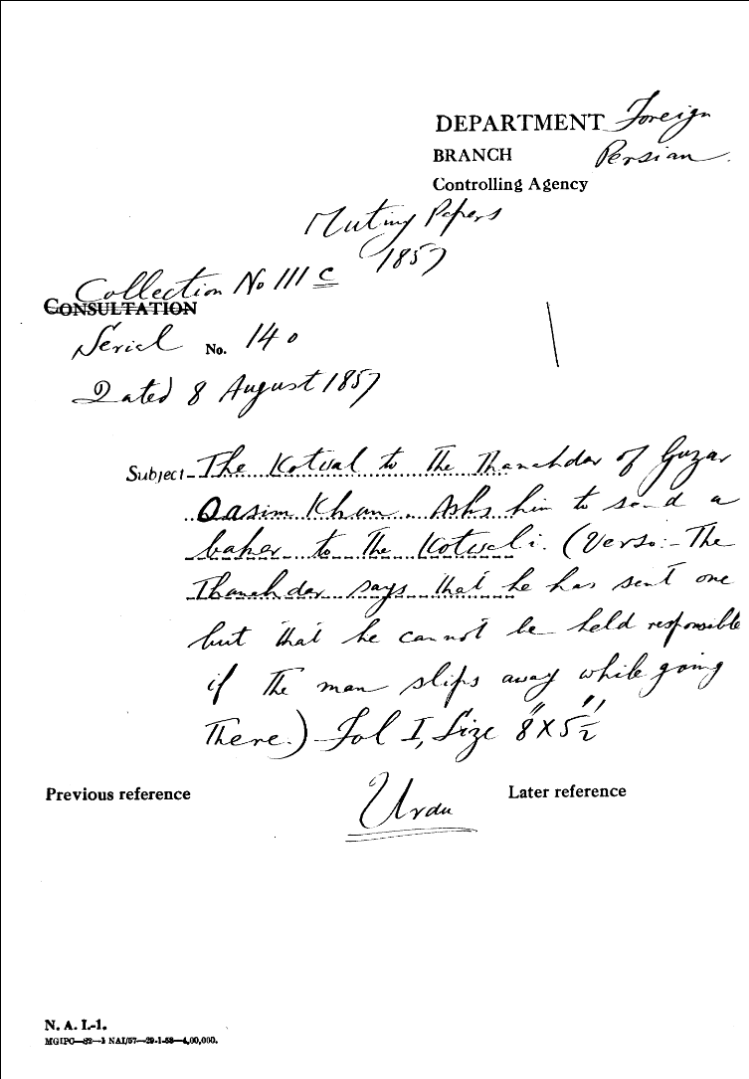 DEPARTMENT Foreign
BRANCH Persian.
Controlling Agency
Mutiny Papers
1857
Collection No 111 C
CONSULTATION
Serial No. 140
Dated 8 August 1857
Subject - The Kotwal to the Thanahdar of Guzar
Qasim Khan. Asks him to send a
baker to the Kotwali. (Verso:- The
Thanahdar says that he has sent one
but that he cannot be held responsible
if the man slips away while going
there.) Fol I, Size 8" X 5½"
Previous reference
Urdu
Later reference
N. A. I.-1.
MGIPC—82—3 NAI/57—29-1-58—4,00,000.